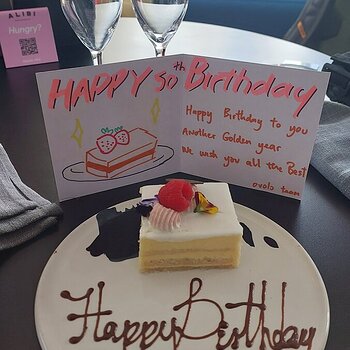 ALIBI
Hungry?
HAPPY 50th Birthday
Happy Birthday to you
Another Golden year
We wish you all the Best
ovolo team
Happy Birthday